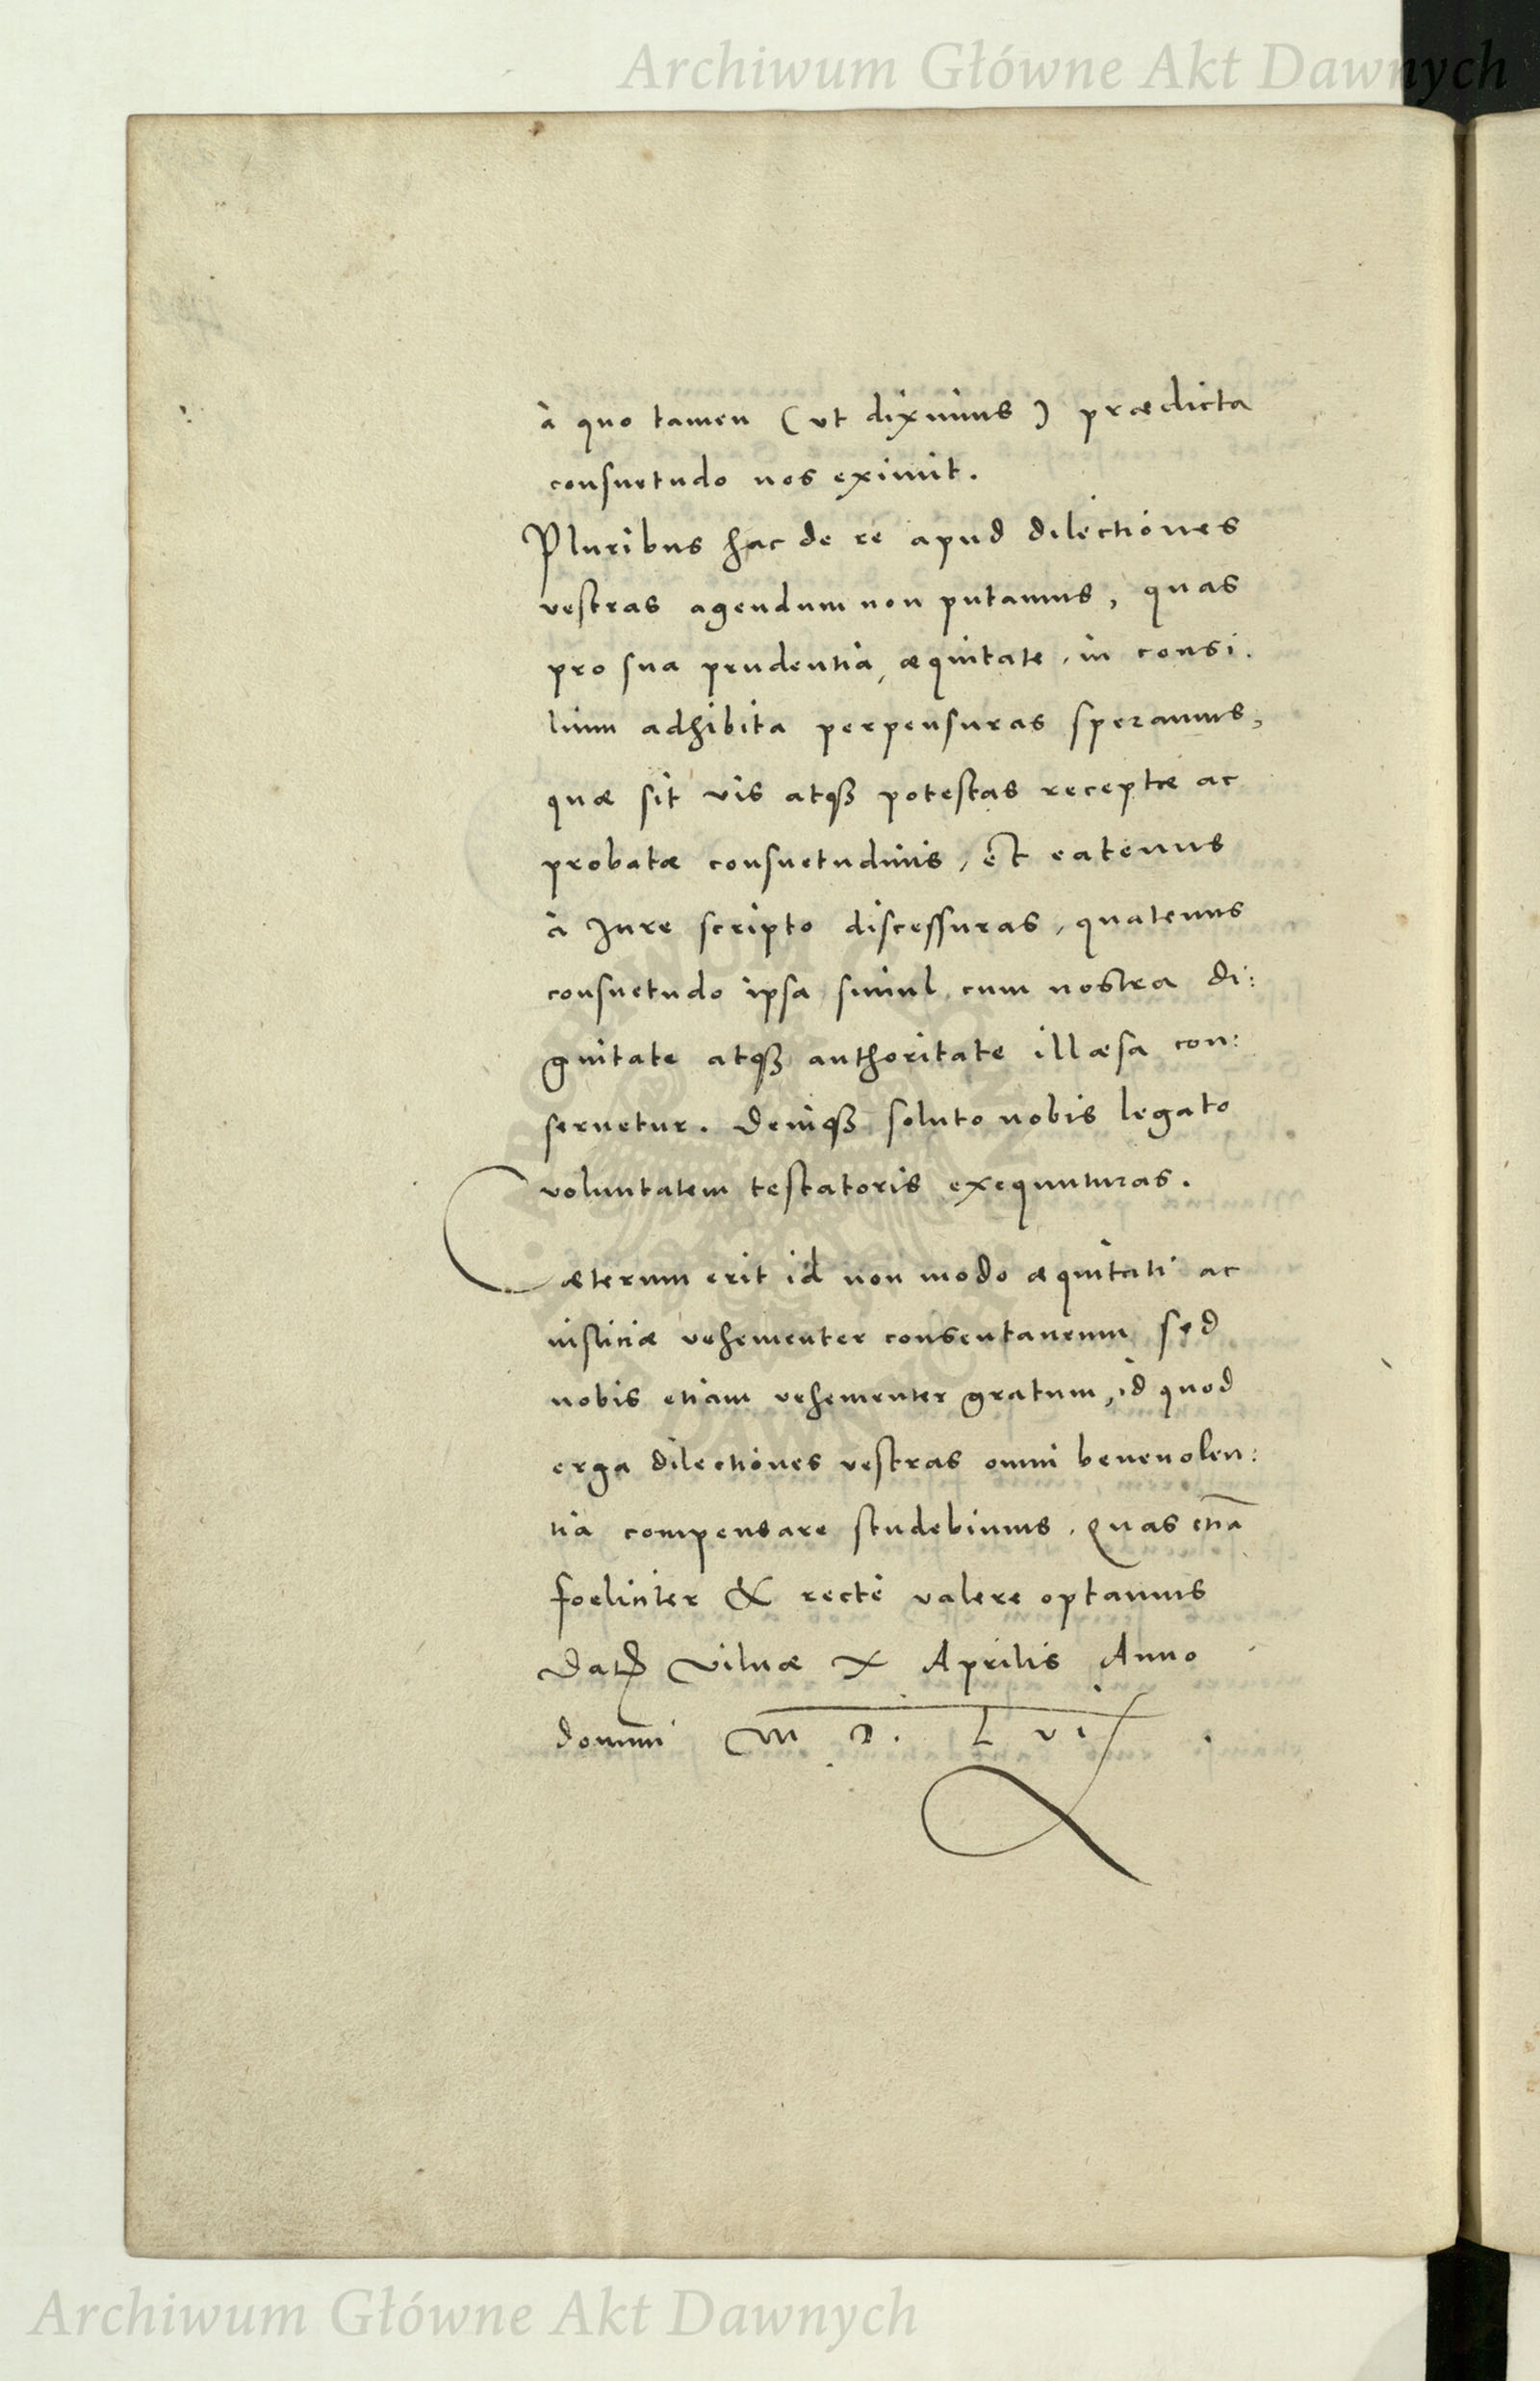 Archiwum Główne Akt Dawnych
à quo tamen (ut diximus) prædicta
consuetudo nos eximit.
Pluribus hac de re apud dilectiones
vestras agendum non putamus, quas
pro sua prudentia, æquitate, in consi.
lium adhibita perpensuras speramus,
quæ sit vis atqꝫ potestas receptæ ac
probatæ consuetudinis, et eatenus
à Jure scripto discessuras, quatenus
consuetudo ipsa simul cum nostra di:
gnitate atqꝫ authoritate illæsa con:
seruetur. Deniqꝫ soluto nobis legato
voluntatem testatoris exequuturas.
Cæterum erit id non modo æquitati ac
iusticiæ vehementer consentaneum sed
nobis etiam vehementer gratum, id quod
erga dilectiones vestras omni beneuolen:
tia compensare studebimus. Quas etiã
foeliciter & recte valere optamus
Dat Vilnæ X Aprilis Anno
domini M D. L vi.
Archiwum Główne Akt Dawnych